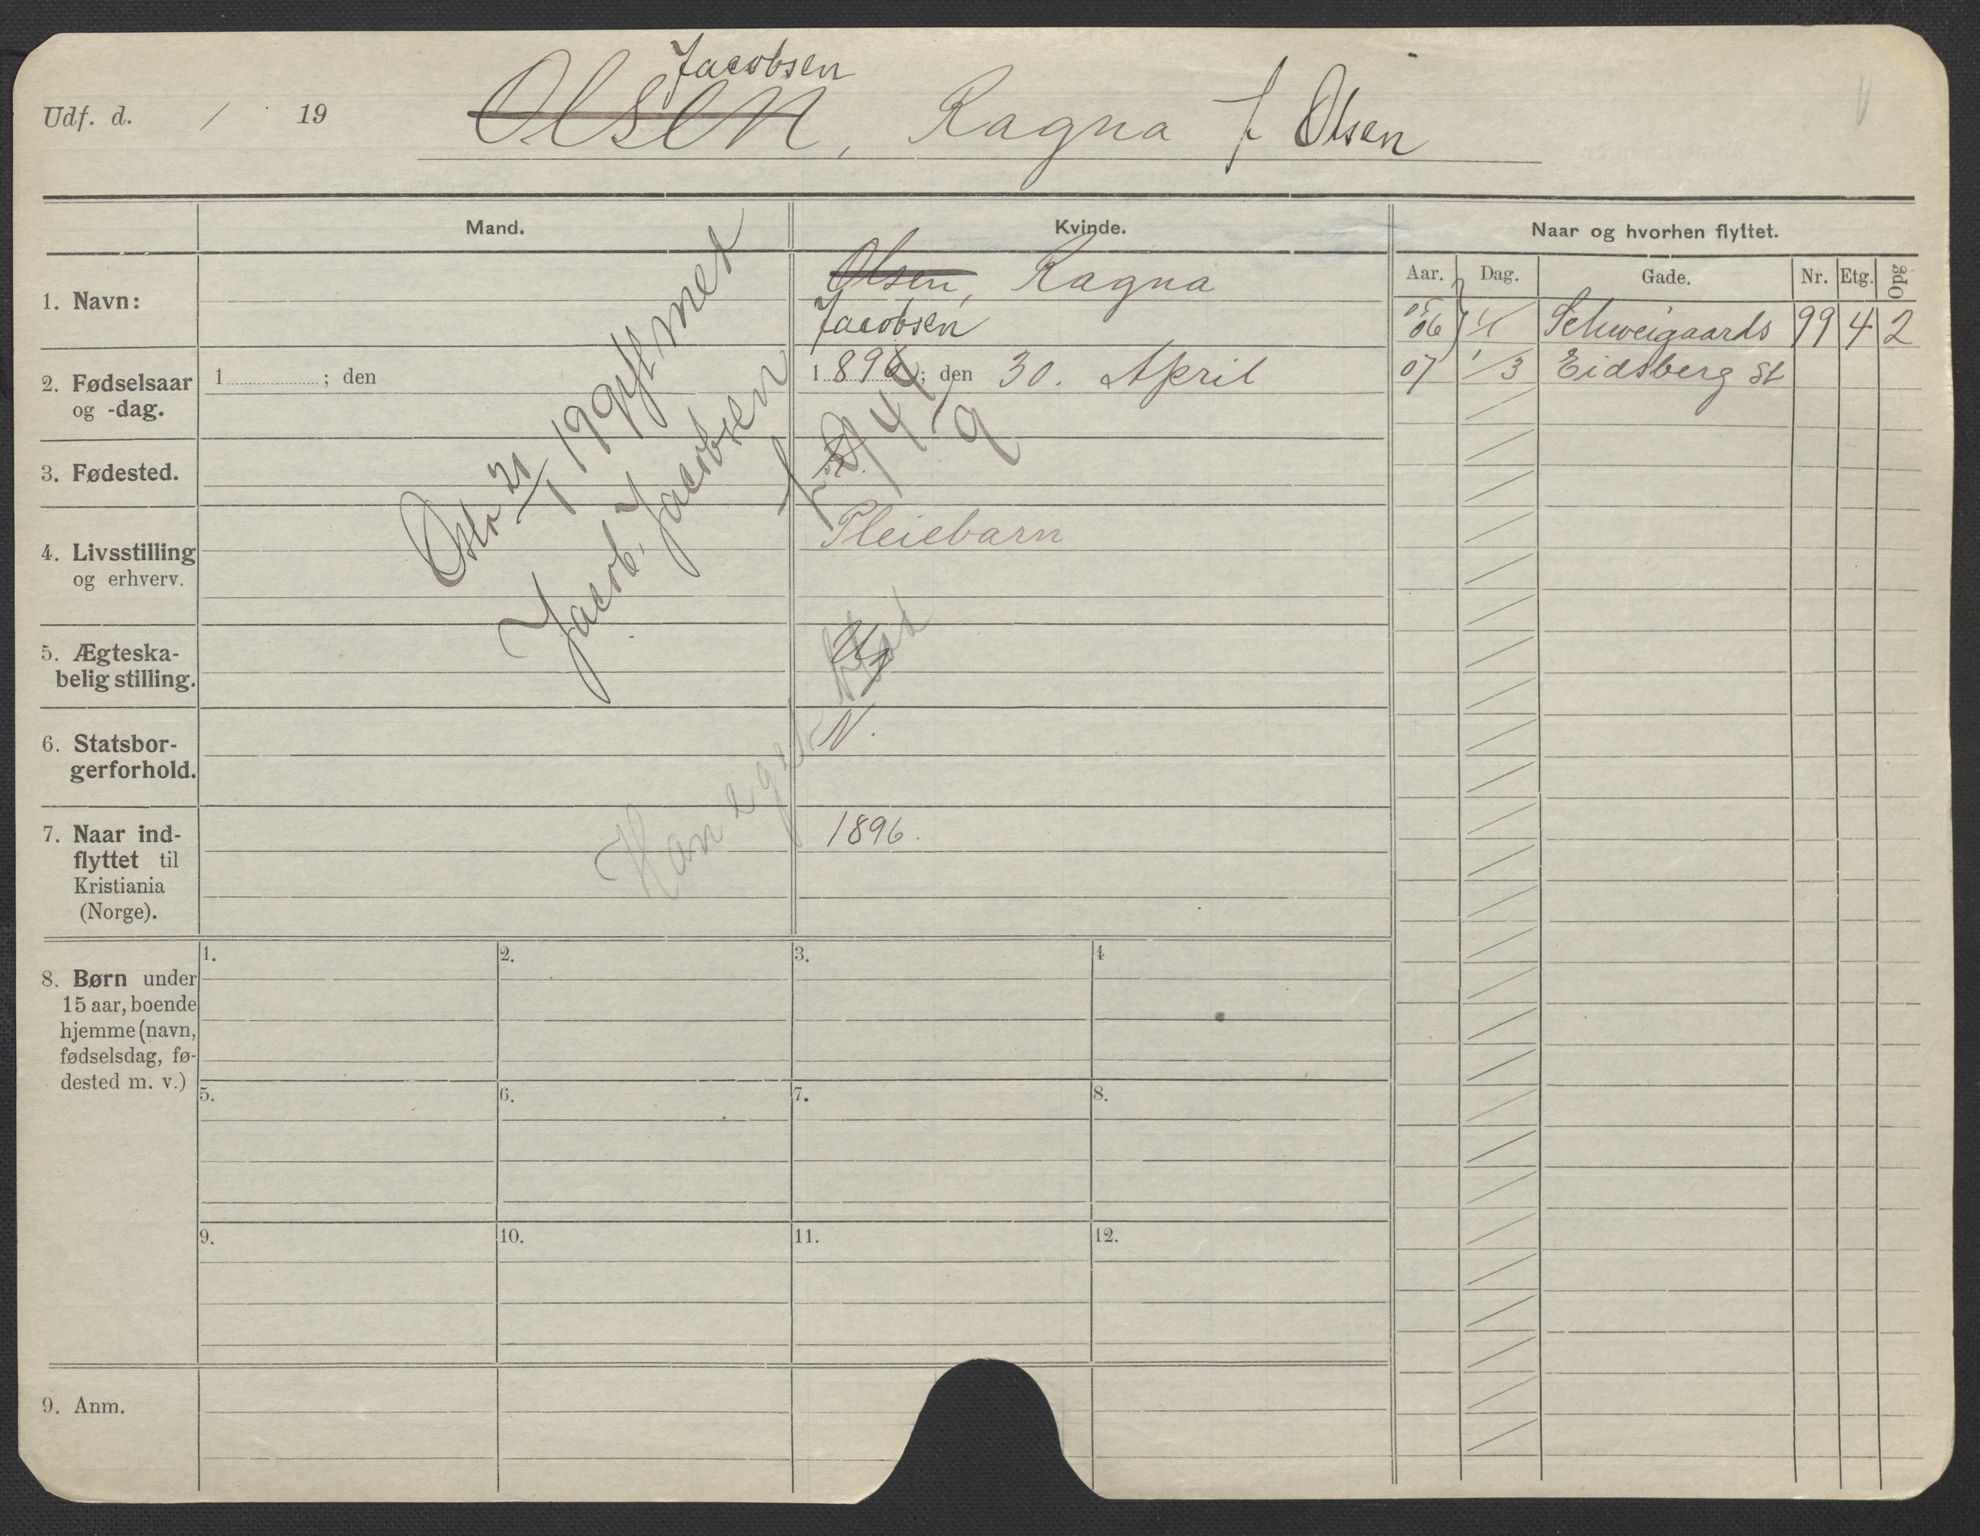 Jacobsen
Udf. d. / 19 Olsen, Ragna f Olsen
Mand. Kvinde. Naar og hvorhen flyttet.
Aar. Dag. Gade. Nr. Etg. Opg
1. Navn: Olsen, Ragna
Jacobsen
06 1/1 Schweigaards 99 4 2
07 1/3 Eidsberg St
2. Fødselsaar 1 ; den 1896; den 30. April
og -dag.
3. Fødested.
Oslo 21/1 1994 gift med
Jacob Jacobsen
f. 9/4 9
4. Livsstilling Pleiebarn
og erhverv.
5. Ægteska-
belig stilling. U
6. Statsbor- N.
gerforhold.
Han eget blad
7. Naar ind- 1896.
flyttet til
Kristiania
(Norge).
8. Børn under
15 aar, boende
hjemme (navn,
fødselsdag, fø-
dested m. v.)
1. 2. 3. 4
5. 6. 7. 8.
9. 10. 11. 12.
9. Anm.